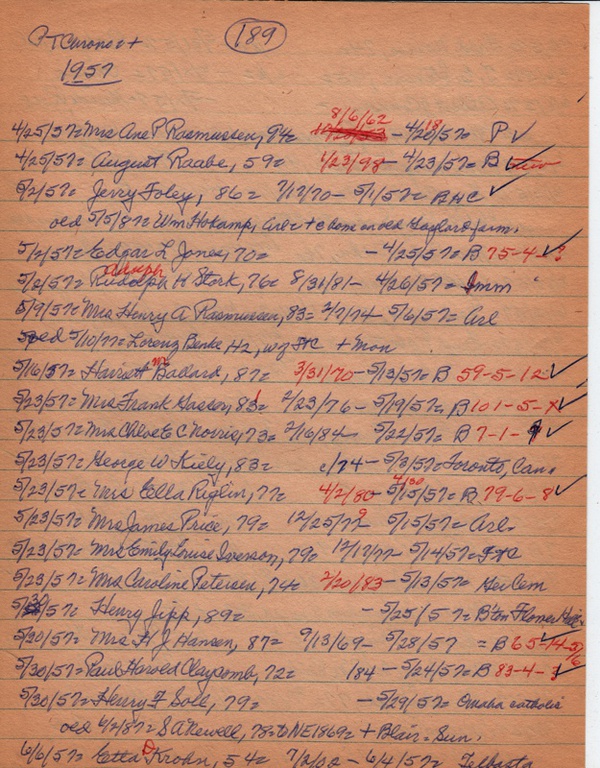 189
1957
8/6/62
4/25/57= Mrs Ane P Rasmussen, 94= - 4/20/57= P ✓
18
4/25/57= August Raabe, 59= 1/23/98 - 4/23/57= B ✓
5/2/57= Jerry Foley, 86= 7/17/70 - 5/1/57= RHC ✓
oed 5/5/87= Wm Hokamp, Arl= + c home on old Gaylord farm.
5/2/57= Edgar L Jones, 70= - 4/25/57= B 75-4-
5/2/57= Rudolph H Stork, 76= 8/31/81 - 4/26/57= Imm
5/9/57= Mrs Henry A Rasmussen, 83= 2/7/74 - 5/6/57= Arl
oed 5/10/77= Lorenz Benke, 42, + Mon
5/16/57= Harriett Badard, 87= 3/31/70 - 5/13/57= B 59-5-12 ✓
5/23/57= Mrs Frank 2/23/76 - 5/19/57= B 101-5-X ✓
5/23/57= Mrs Chloe E C Norris, 73= 2/16/84 - 5/22/57= B 7-1- ✓
5/23/57= George W Kiely, 83= c/74 - 5/3/57= Toronto, Can.
5/23/57= Mrs Ella Riglin, 77= 4/2/80 - 5/15/57= B 79-6-8 ✓
4/30
5/23/57= Mrs James Price, 79= 12/25/77 5/15/57= Arl.
9
5/23/57= Mrs Emily Louise Iverson, 79= 12/17/77 - 5/14/57= FtC
5/23/57= Mrs Caroline Petersen, 74= 2/20/83 - 5/13/57= Her Cem
5/30/57= Henry Jipp, 89= - 5/25/57=
5/30/57= Mrs H J Hansen, 87= 9/13/69 - 5/28/57 = B 65-14-5/6
5/30/57= Paul Harold Claycomb, 72= 184 - 5/24/57= B 83-4- ✓
5/30/57= Henry F Soll, 79= - 5/29/57= Omaha catholic
oed 6/2/87= S A Newell, 78= to NE 1869= + Blair = Sun.
6/6/57= Etta Krohn, 54= - 6/4/57= Telbasta